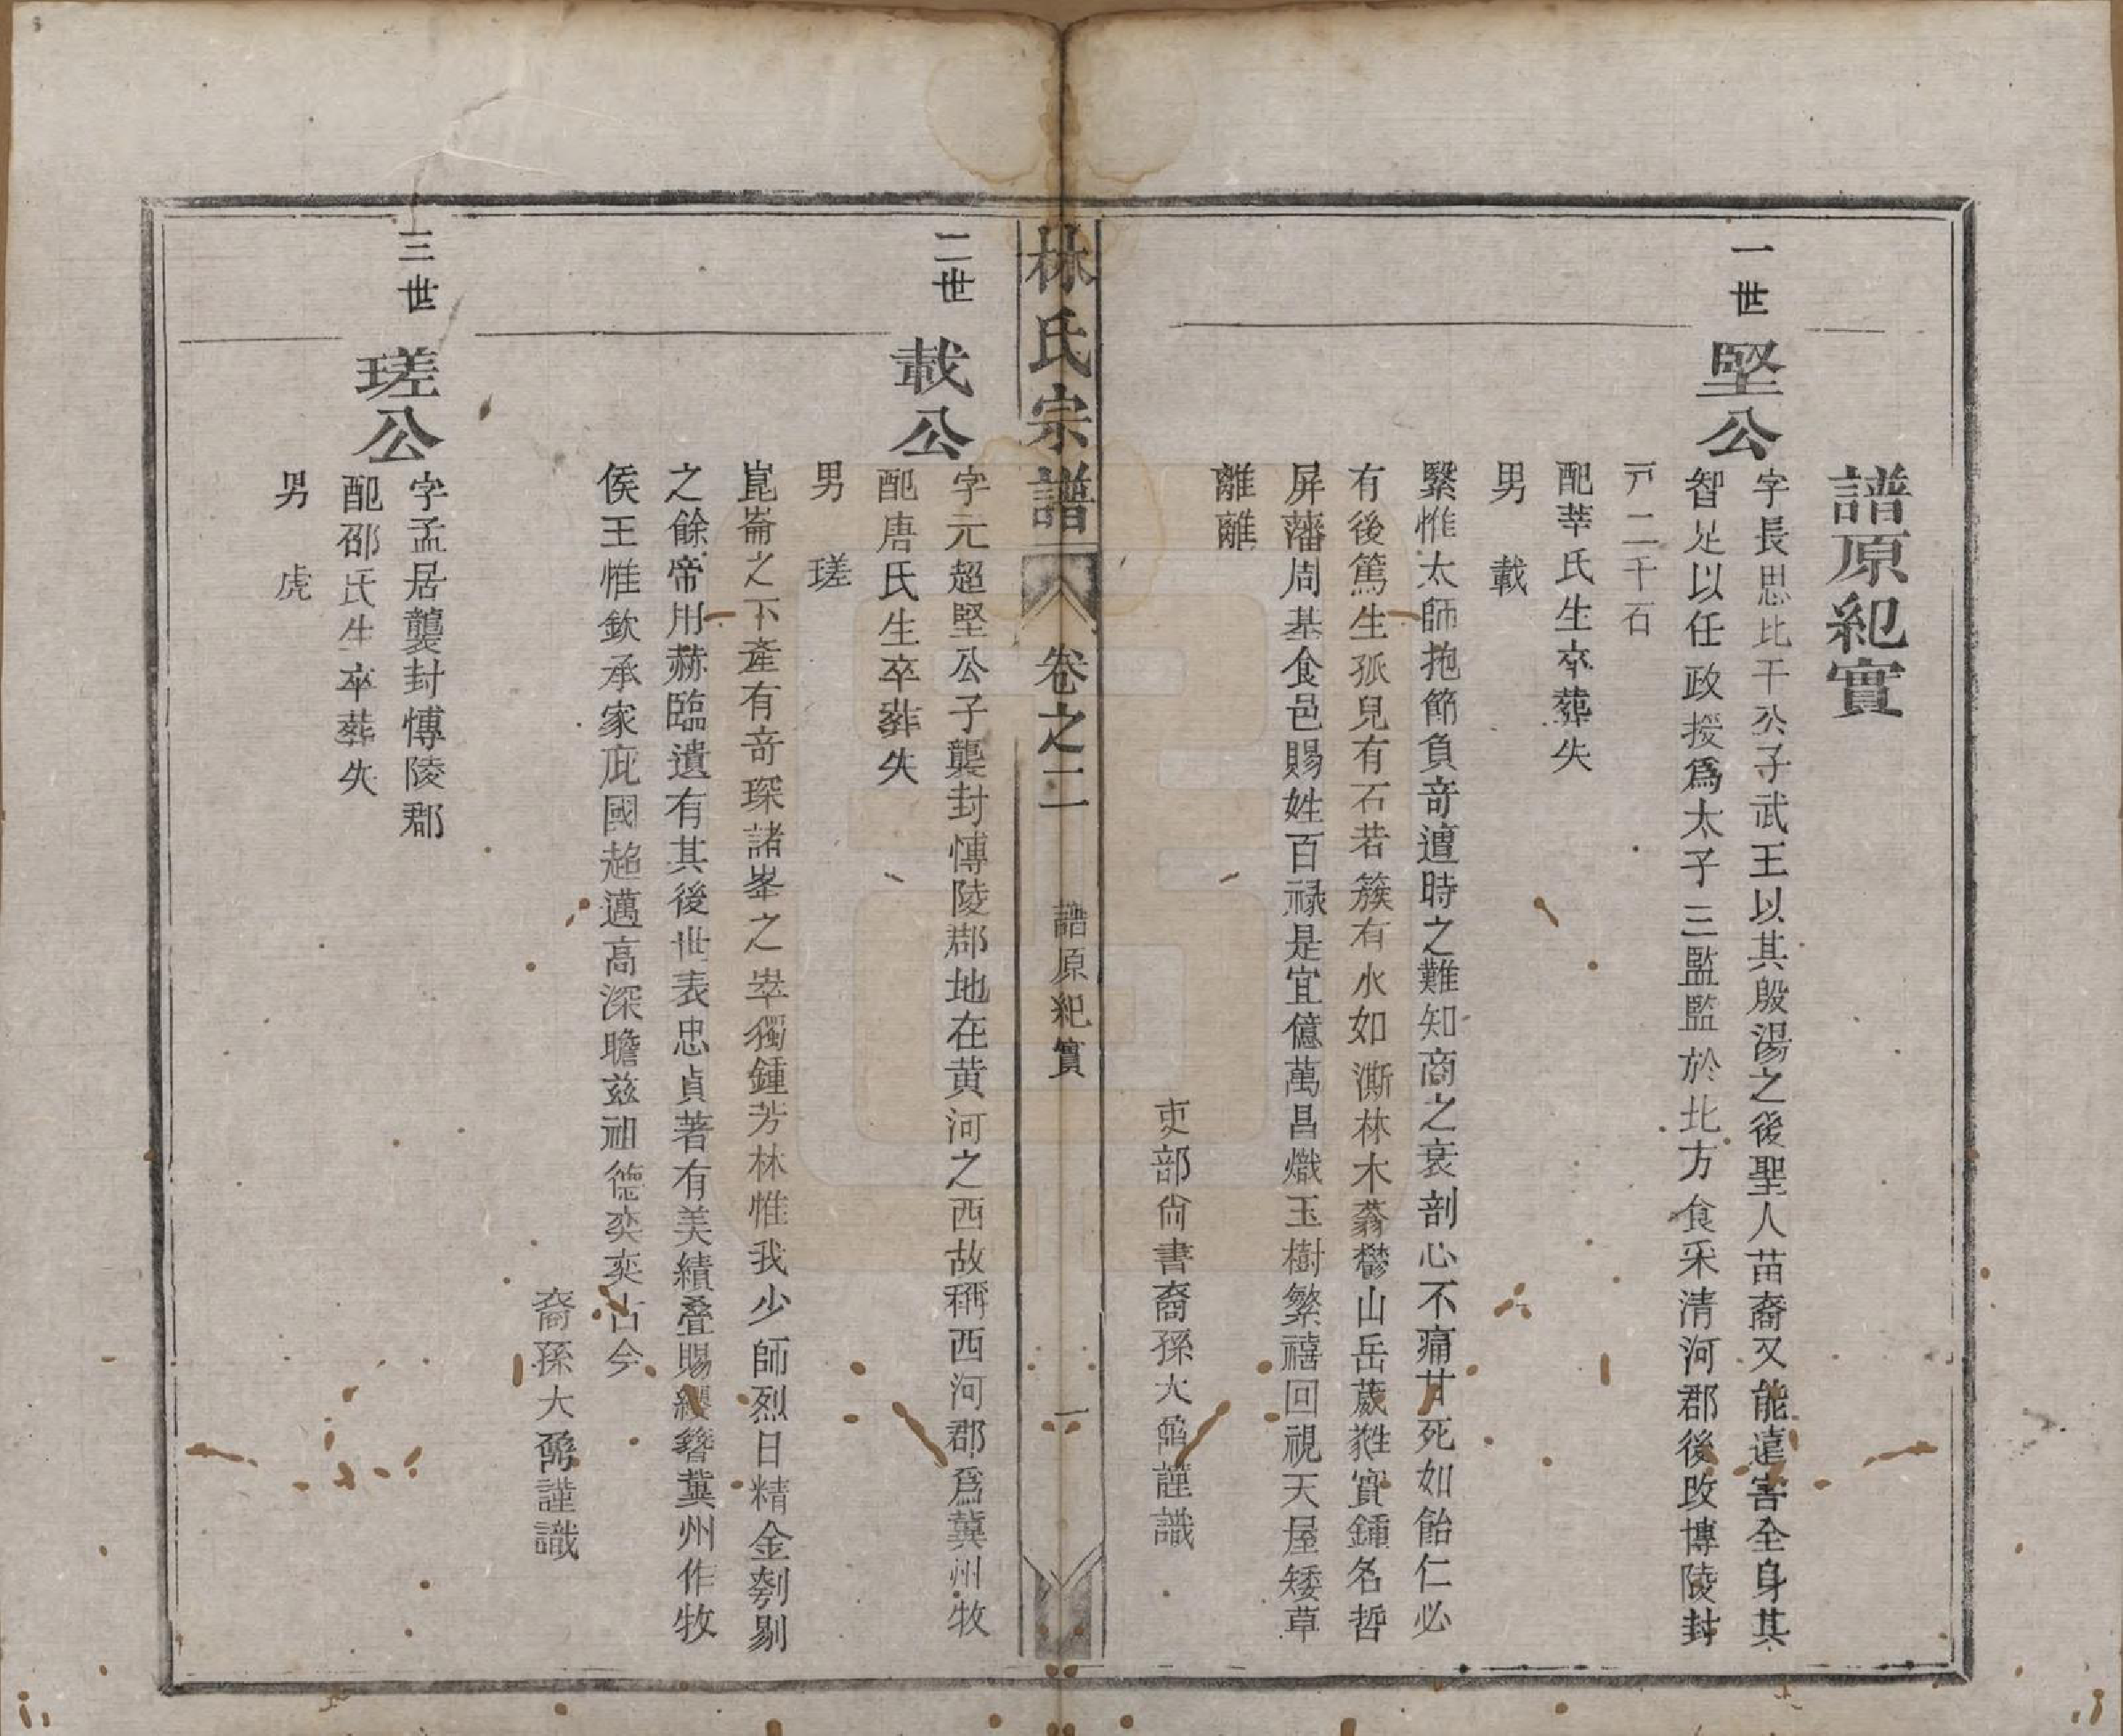 譜原紀實
一世
堅公
字長思比干公子武王以其殷湯之後聖人苗裔又能遠害全身其
智足以任政授爲太子三監監於北方食采清河郡後改博陵封
戸二千石
配莘氏生卒葬失
男 載
緊惟太師抱節負奇遭時之難知商之衰剖心不痛甘死如飴仁必
有後篤生孤兒有石若簇有水如澌林木蓊鬱山岳葳甡實鍾名哲
屏藩周基食邑賜姓百祿是宜億萬昌熾玉樹繁禧回視天屋矮草
離離
吏部尙書裔孫大鼐謹識
林氏宗譜
卷之二
譜原紀實
一
二世
載公
字元超堅公子襲封愽陵郡地在黄河之西故稱西河郡爲冀州牧
配唐氏生卒葬失
男 瑳
崑崙之下產有奇琛諸峯之崒獨鍾芳林惟我少師烈日精金刳剔
之餘帝用赫臨遺有其後世表忠貞著有美績叠賜纓簪冀州作牧
侯王惟欽承家庇國超邁高深瞻玆祖德奕奕古今
裔孫大鼐謹識
三世
瑳公
字孟居襲封愽陵郡
配邵氏生卒葬失
男 虎